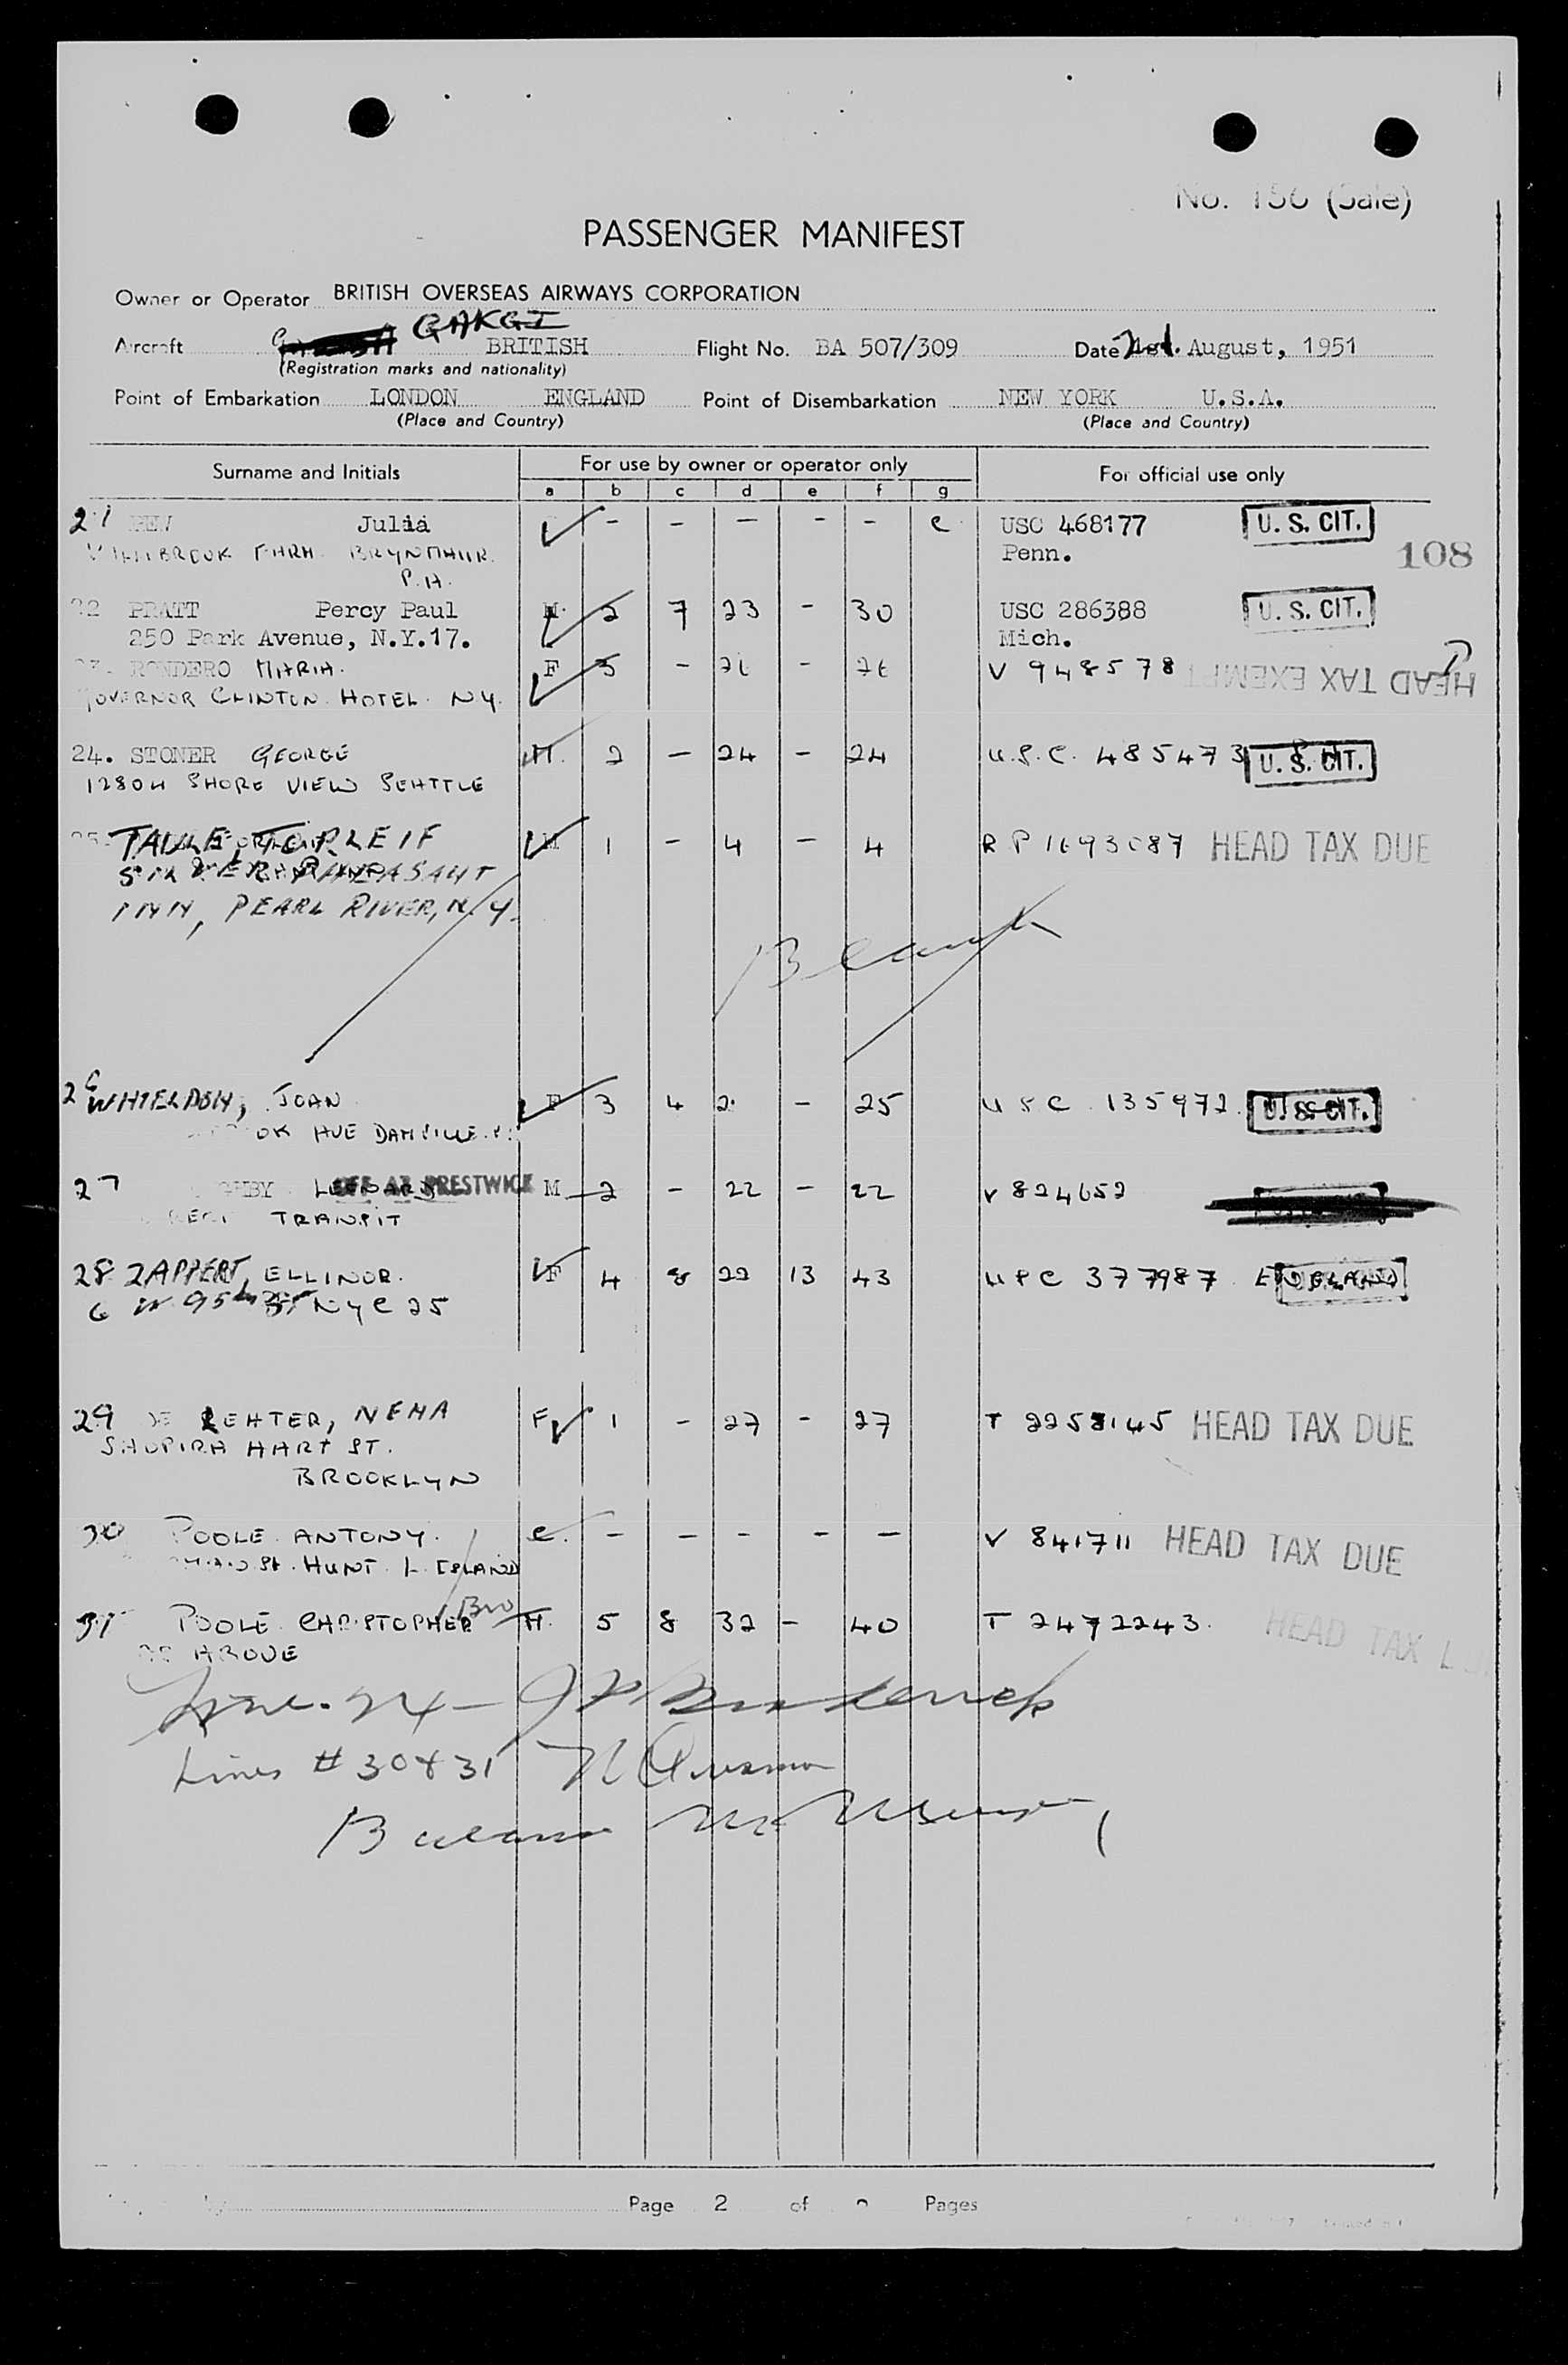 PASSENGER MANIFEST
Owner or Operator BRITISH OVERSEAS AIRWAYS CORPORATION
Aircraft GAKGI BRITISH Flight No. BA 507/309 Date August, 1951
(Registration marks and nationality)
Point of Embarkation LONDON ENGLAND Point of Disembarkation NEW YORK U.S.A.
(Place and Country) (Place and Country)
Surname and Initials For use by owner or operator only For official use only
a b c d e f g
21 PEW Julia - - - - - C USC 468177 U. S. CIT.
FARM BRYNMAUR. Penn. 108
P.A.
22 PRATT Percy Paul M. 2 7 23 - 30 USC 286388 U. S. CIT.
250 Park Avenue, N.Y.17. Mich.
RONDERO MARIA. F 5 - V 948578 HEAD TAX EXEMPT
GOVERNOR CLINTON HOTEL. N.Y.
24. STONER GEORGE M. 2 - 24 - 24 U.S.C. 485473 U. S. CIT.
12804 SHORE VIEW SEATTLE
25. M 1 - 4 - 4 R P 1693087 HEAD TAX DUE
INN, PEARL RIVER, N.Y.
Blank
26 WHIELDON, JOAN F 3 4 - 25 U S C 135972. U. S. CIT.
AVE DANVILLE
27 OFF AT PRESTWICK M 2 - 22 - 22 V 824652
TRANSIT
28 ZAPPERT, ELLINOR. F 4 8 22 13 43 U S C 377987
6 W 95th ST N Y C 25
29 DE REHTER, NEHA F 1 - 27 - 27 T 2258145 HEAD TAX DUE
SHOPIRA HART ST.
BROOKLYN
30 POOLE ANTONY. C. - - - - - V 841711 HEAD TAX DUE
ST. HUNT. L. ISLAND
31 POOLE CHRISTOPHER M. 5 8 32 - 40 T 2472243. HEAD TAX
AS ABOVE
Lines # 30 & 31
Page 2 of Pages